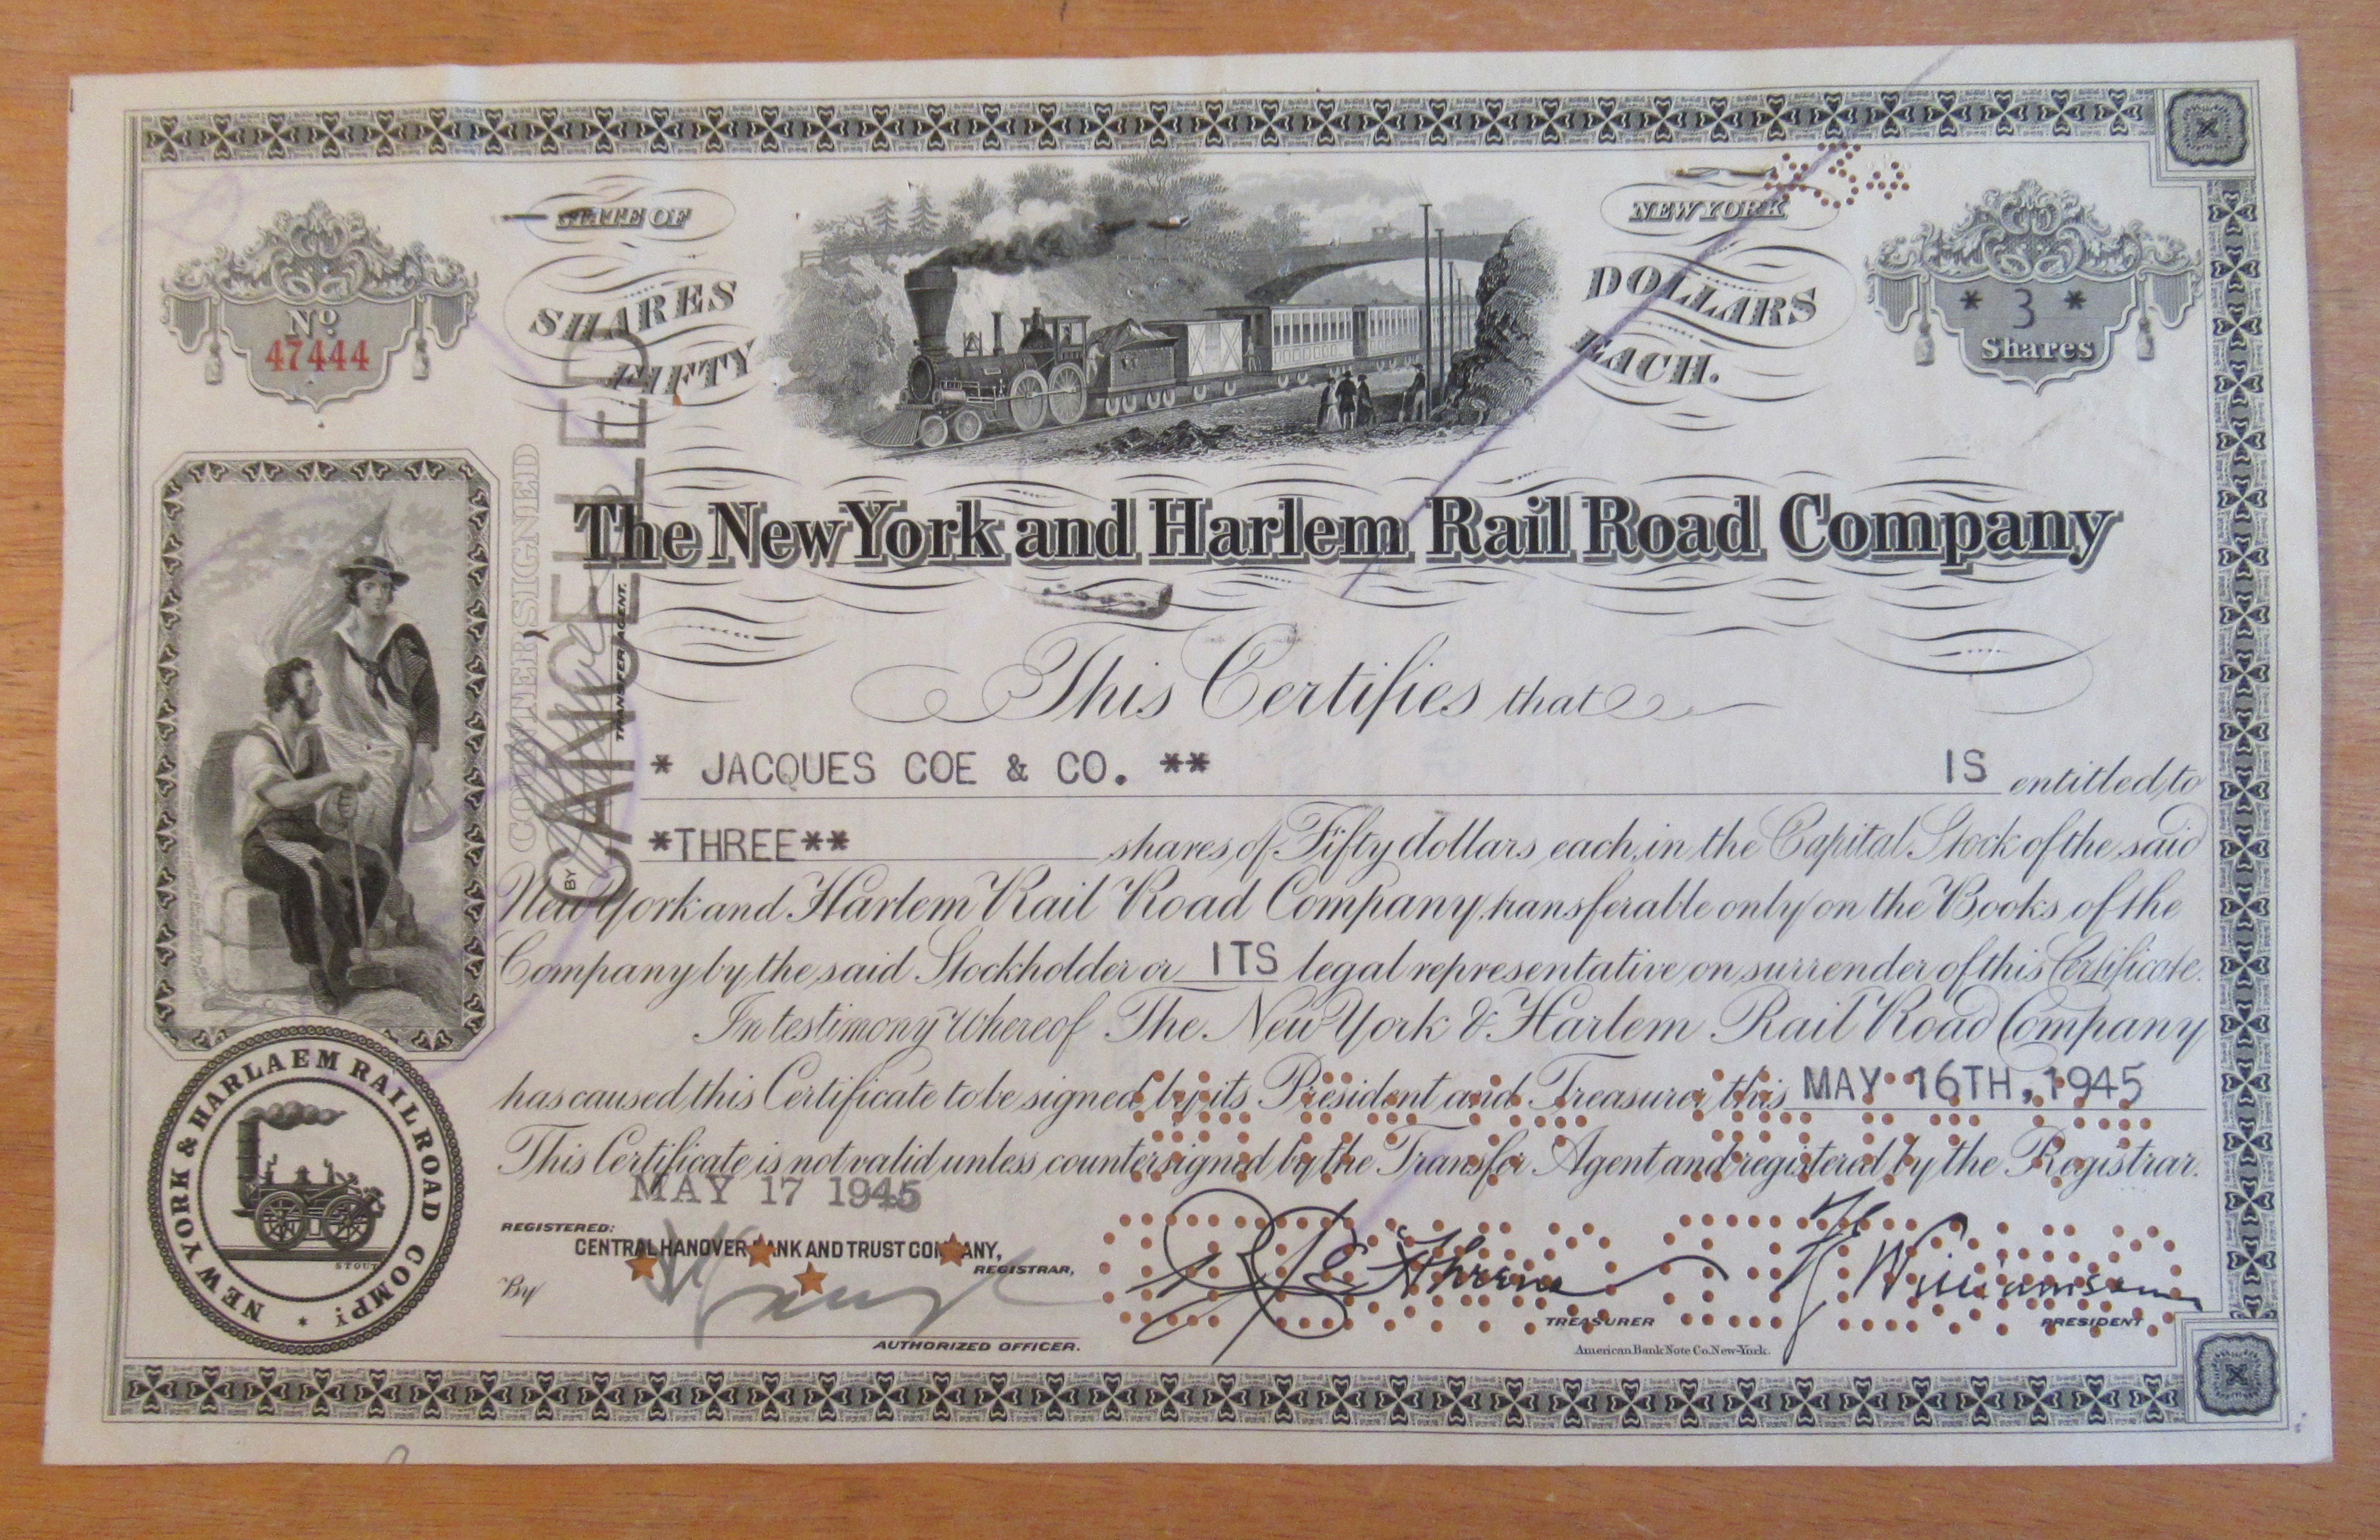 STATE OF
NEW YORK
SHARES
FIFTY
DOLLARS
EACH.
No
47444
* 3 *
Shares
The New York and Harlem Rail Road Company
This Certifies that
* JACQUES COE & CO. ** IS entitled to
*THREE** shares of Fifty dollars each, in the Capital Stock of the said
New York and Harlem Rail Road Company, transferable only on the Books of the
Company by the said Stockholder or ITS legal representative on surrender of this Certificate.
In testimony Whereof The New York & Harlem Rail Road Company
has caused this Certificate to be signed by its President and Treasurer this MAY 16TH, 1945
This Certificate is not valid unless countersigned by the Transfer Agent and registered by the Registrar.
MAY 17 1945
REGISTERED:
CENTRAL HANOVER BANK AND TRUST COMPANY,
REGISTRAR,
By
AUTHORIZED OFFICER.
TREASURER
Williamson
PRESIDENT
American Bank Note Co. New-York.
COUNTERSIGNED
CANCELLED
BY
TRANSFER AGENT.
NEW YORK & HARLAEM RAILROAD COMPY *
STOUT